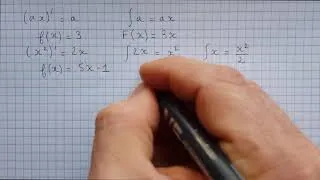 (ax)' = a    ∫a = ax
f(x) = 3    F(x) = 3x
(x²)' = 2x    ∫2x = x²    ∫x = x²/2
f(x) = 5x-1